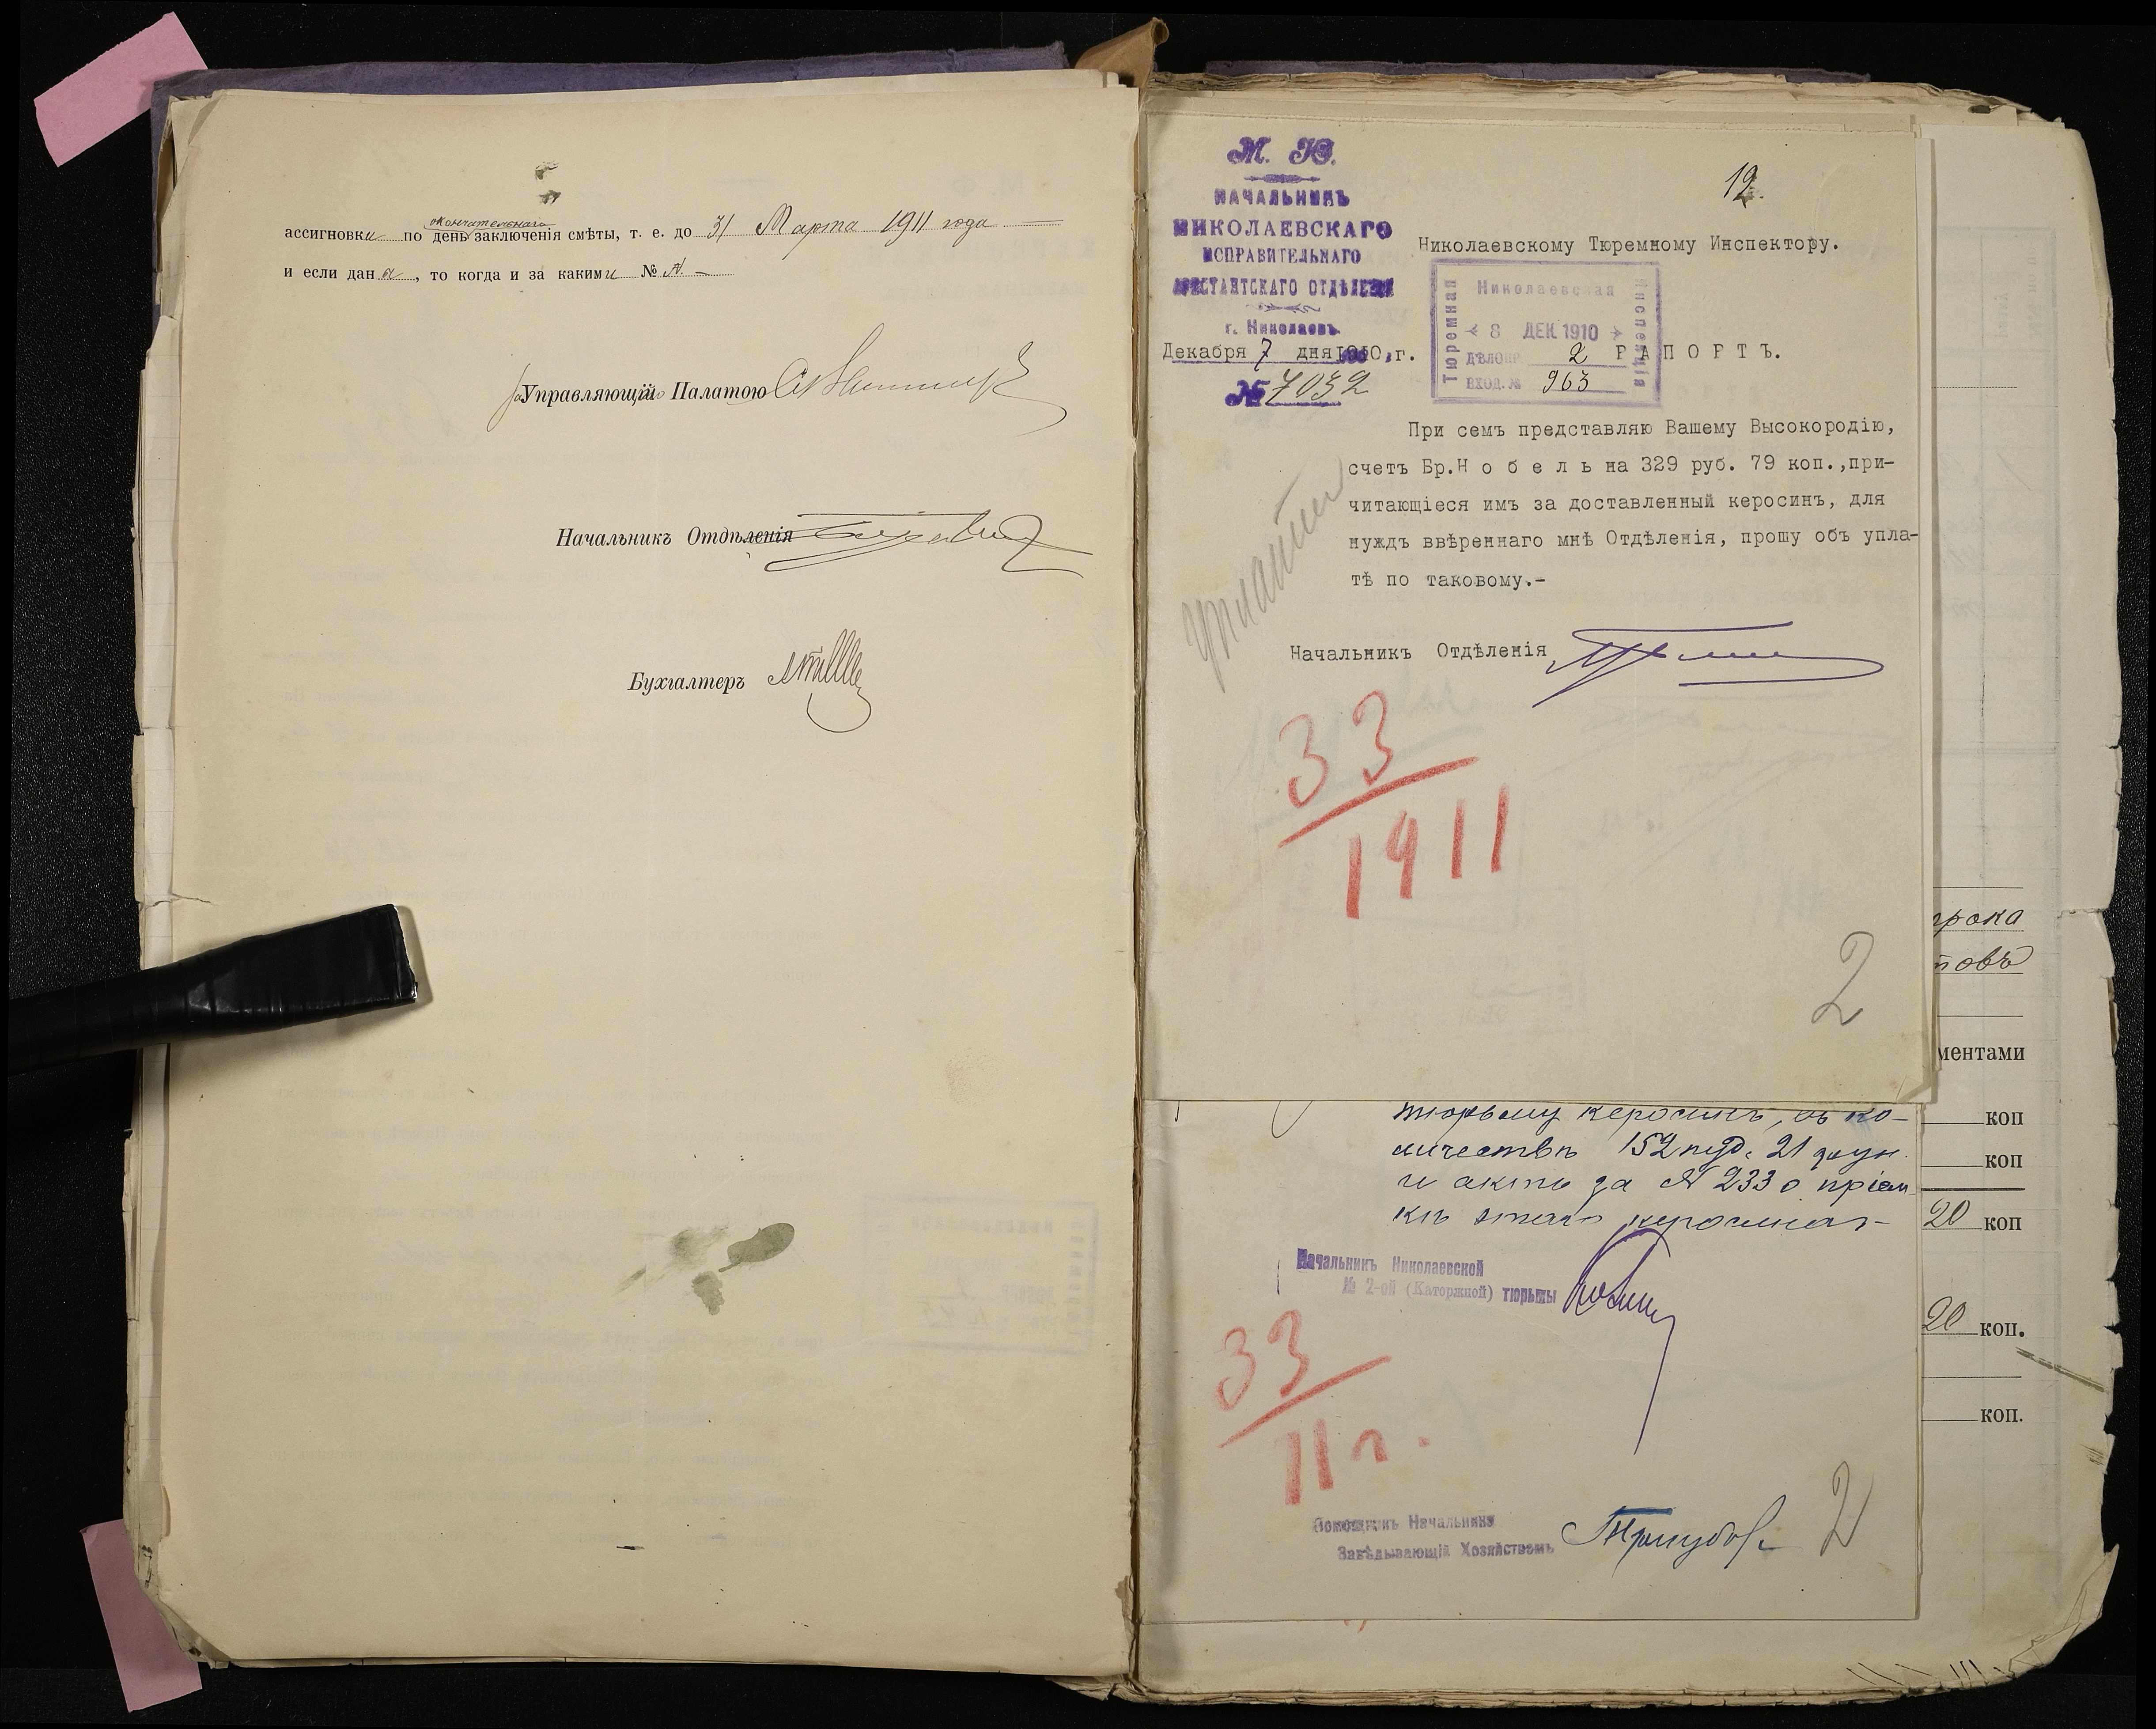 окончательнаго
ассигновки по день заключенія смѣты, т. е. до 31 Марта 1911 года
и если дана, то когда и за какими № №
Управляющій Палатою
Начальникъ Отдѣленія
Бухгалтеръ
М. Ю.
НАЧАЛЬНИКЪ
НИКОЛАЕВСКАГО
ИСПРАВИТЕЛЬНАГО
АРЕСТАНТСКАГО ОТДѢЛЕНІЯ
г. Николаевъ
Декабря 7 дня 1910 г.
№ 7032
12.
Николаевскому Тюремному Инспектору.
Николаевская
Тюремная
Инспекція
8 ДЕК 1910
ДѢЛОПР. 2
ВХОД. № 963
РАПОРТЪ.
При семъ представляю Вашему Высокородію,
счетъ Бр.Нобель на 329 руб. 79 коп.,при-
читающіеся имъ за доставленный керосинъ, для
нуждъ ввѣреннаго мнѣ Отдѣленія, прошу объ упла-
тѣ по таковому.-
Начальникъ Отдѣленія
33
1911
2
тюрьму керосинъ, въ ко-
личествѣ 152 пуд. 21 фун.
и актъ за № 233 о пріем
кѣ этаго керосина-
Начальникъ Николаевской
№ 2-ой (Каторжной) тюрьмы
33
11 г.
Помощникъ Начальника
Завѣдывающій Хозяйствомъ
2
рока
товъ
ментами
коп
коп
20 коп
20 коп.
коп.